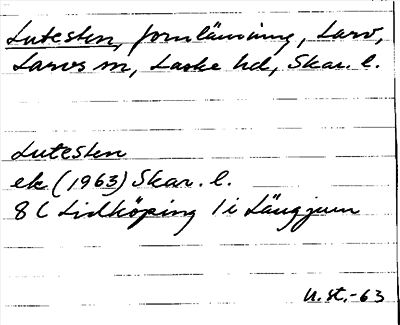 Lutesten, fornlämning, Larv,
Larvs sn, Laske hd, Skar. l.
Lutesten
ek (1963) Skar. l.
8C Lidköping 1i Längjum
U. st. -63